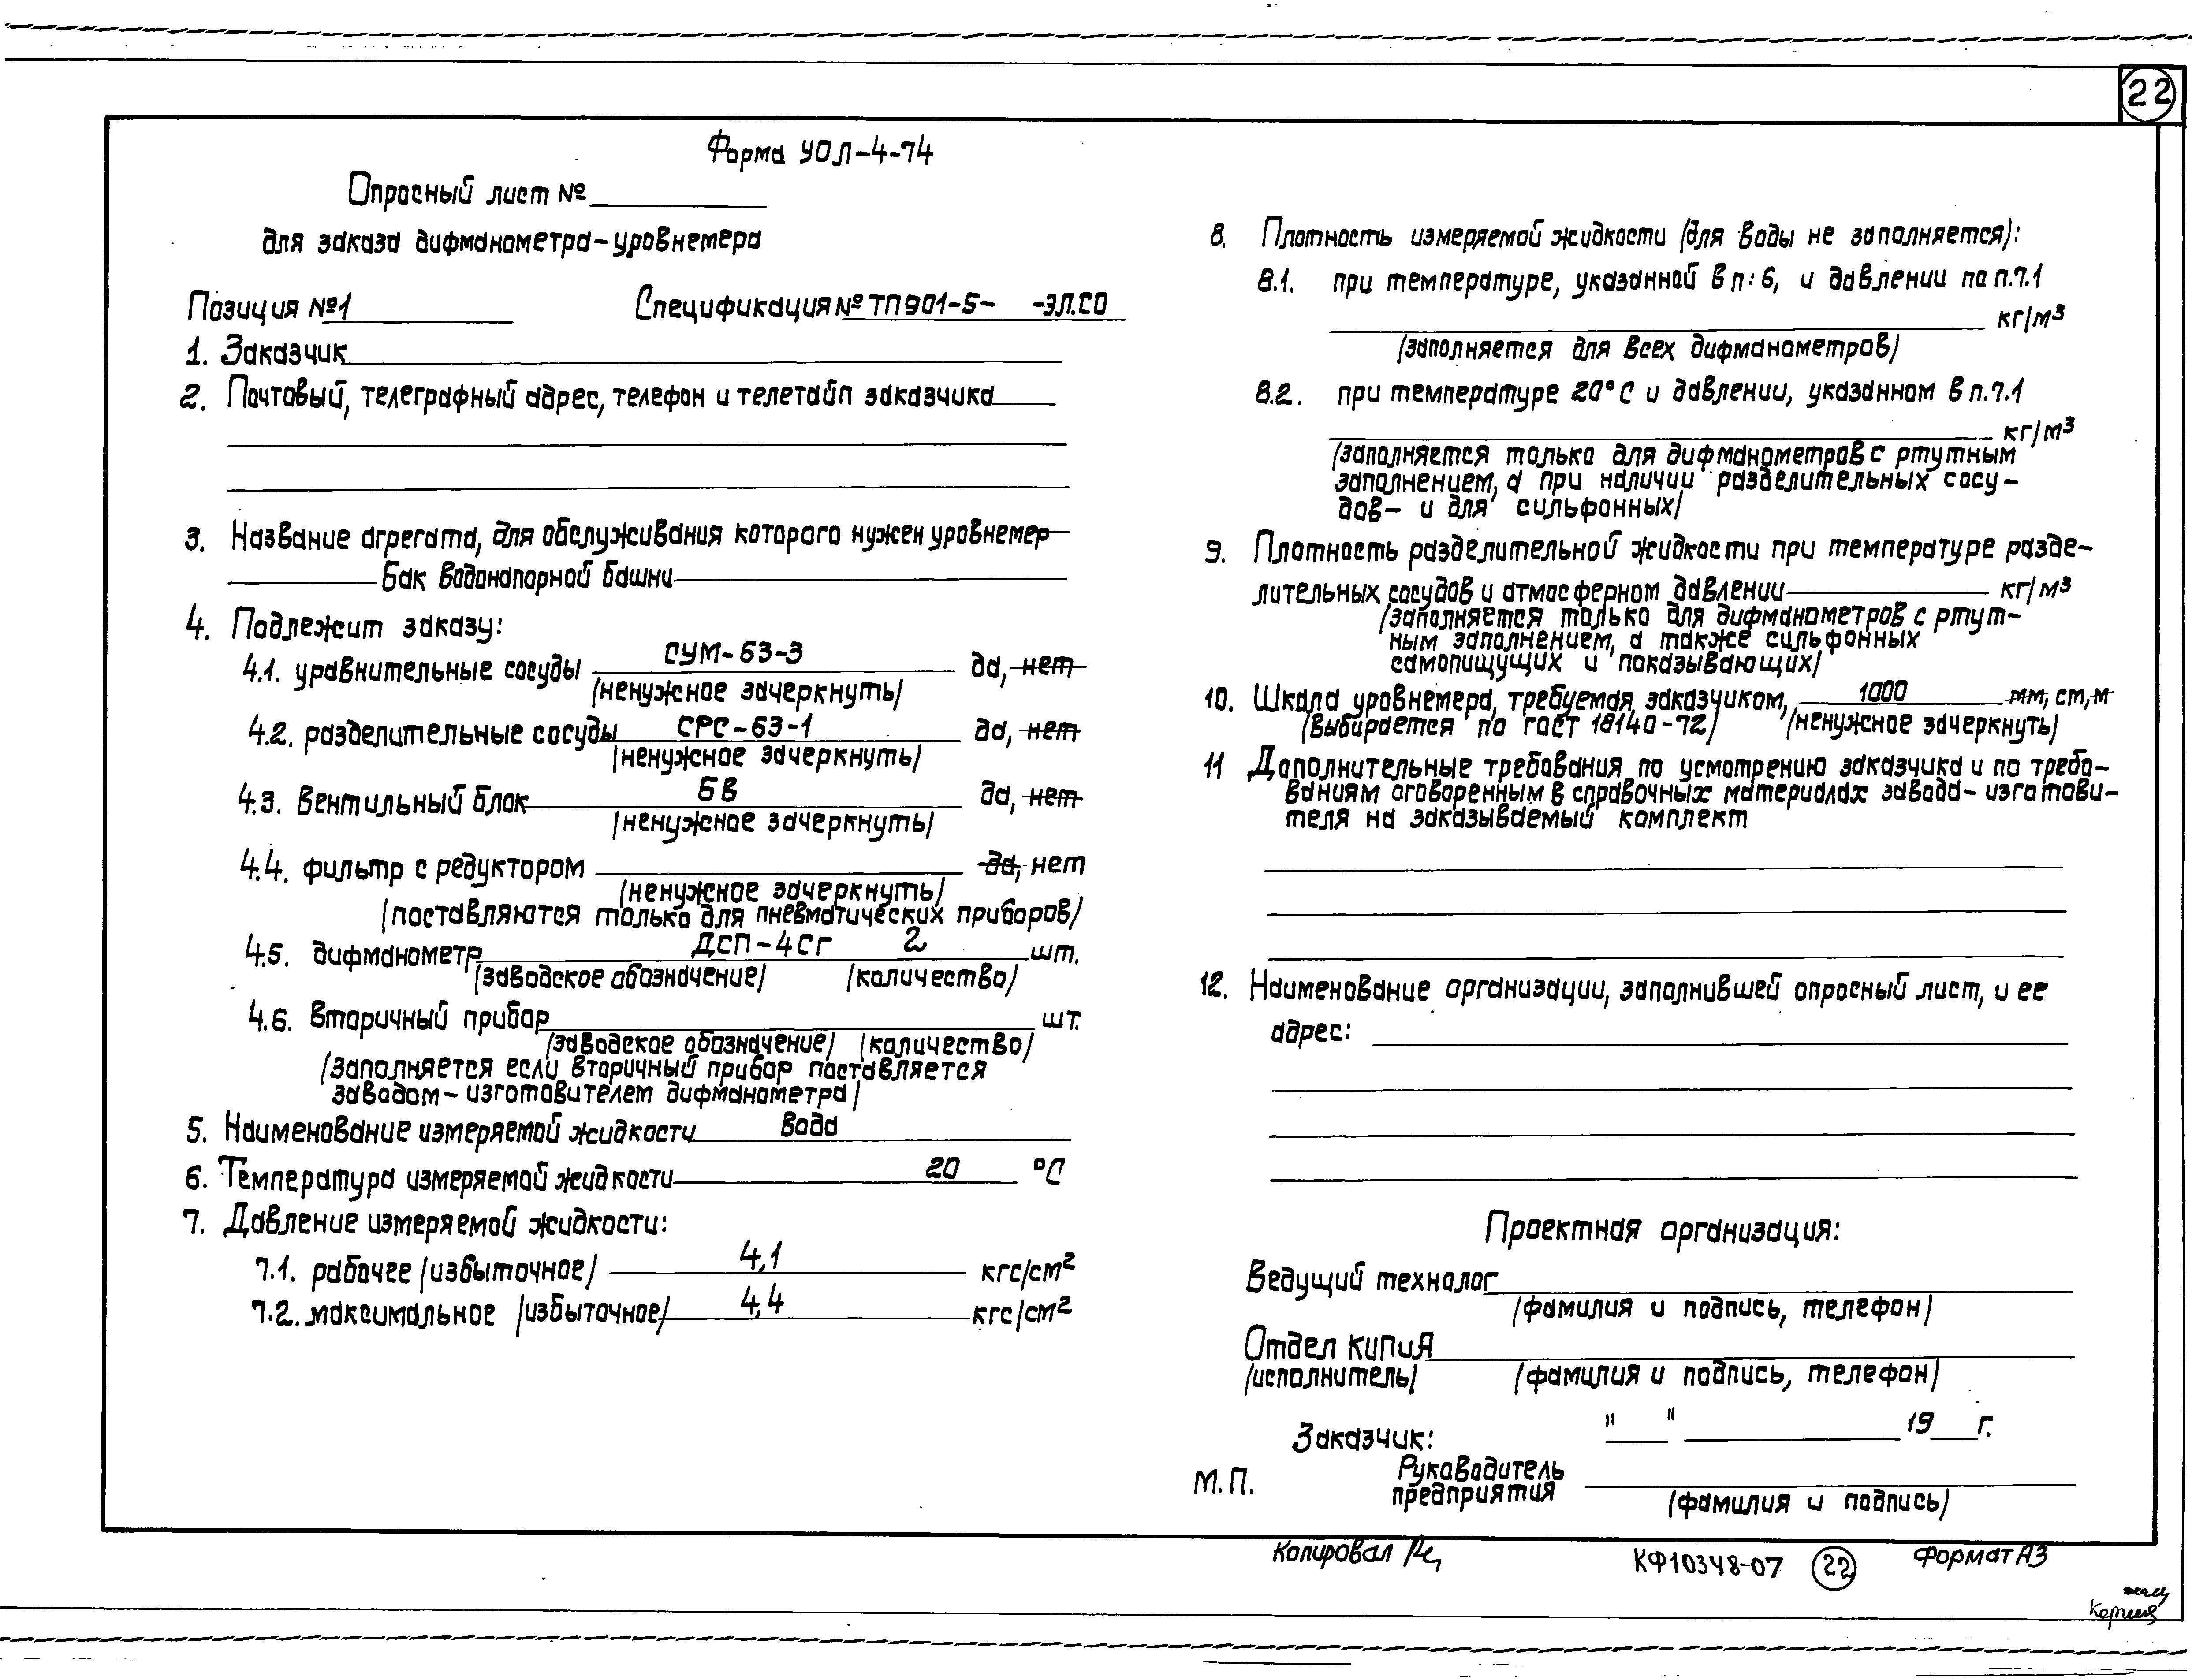 22
Форма УОЛ-4-74
Опросный лист №
для заказа дифманометра-уровнемера
Позиция №1 Спецификация № ТП901-5- -ЭЛ.СО
1. Заказчик
2. Почтовый, телеграфный адрес, телефон и телетайп заказчика
3. Название агрегата, для обслуживания которого нужен уровнемер
Бак водонапорной башни
4. Подлежит заказу:
4.1. уравнительные сосуды СУМ-63-3 да, нет
/ненужное зачеркнуть/
4.2. разделительные сосуды СРС-63-1 да, нет
/ненужное зачеркнуть/
4.3. Вентильный блок БВ да, нет
/ненужное зачеркнуть/
4.4. фильтр с редуктором да, нет
/ненужное зачеркнуть/
/поставляются только для пневматических приборов/
4.5. дифманометр ДСП-4СГ 2 шт.
/заводское обозначение/ /количество/
4.6. Вторичный прибор шт.
/заводское обозначение/ /количество/
/заполняется если вторичный прибор поставляется
заводом-изготовителем дифманометра/
5. Наименование измеряемой жидкости вода
6. Температура измеряемой жидкости 20 °С
7. Давление измеряемой жидкости:
7.1. рабочее /избыточное/ 4,1 кгс/см²
7.2. максимальное /избыточное/ 4,4 кгс/см²
8. Плотность измеряемой жидкости /для воды не заполняется/:
8.1. при температуре, указанной в п. 6, и давлении по п.7.1
кг/м³
/заполняется для всех дифманометров/
8.2. при температуре 20°С и давлении, указанном в п.7.1
кг/м³
/заполняется только для дифманометров с ртутным
заполнением, а при наличии разделительных сосу-
дов- и для сильфонных/
9. Плотность разделительной жидкости при температуре разде-
лительных сосудов и атмосферном давлении кг/м³
/заполняется только для дифманометров с ртут-
ным заполнением, а также сильфонных
самопищущих и показывающих/
10. Шкала уровнемера, требуемая заказчиком, 1000 мм, ст, м
/выбирается по ГОСТ 18140-72/ /ненужное зачеркнуть/
11 Дополнительные требования по усмотрению заказчика и по требо-
ваниям оговоренным в справочных материалах завода-изготови-
теля на заказываемый комплект
12. Наименование организации, заполнившей опросный лист, и ее
адрес:
Проектная организация:
Ведущий технолог
/фамилия и подпись, телефон/
Отдел КИПиА
/исполнитель/ /фамилия и подпись, телефон/
Заказчик: " " 19 г.
М.П. Руководитель
предприятия
/фамилия и подпись/
Копировал КФ10348-07 22 Формат А3